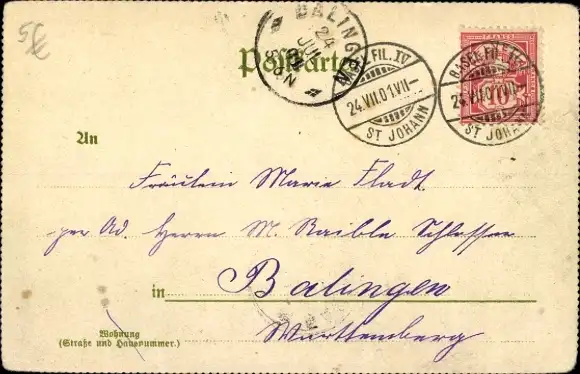 5€
BALINGEN
24 JUL
Postkarte
BASEL FIL. IV
24.VII.01.VII—
ST JOHANN
BASEL FIL. IV
24.VII.01.VII—
ST JOHANN
FRANCO
10
An
Fräulein Marie Fladt
per Ad. Herrn M. Raible Schlosser
in Balingen
Württemberg
Wohnung
(Straße und Hausnummer.)